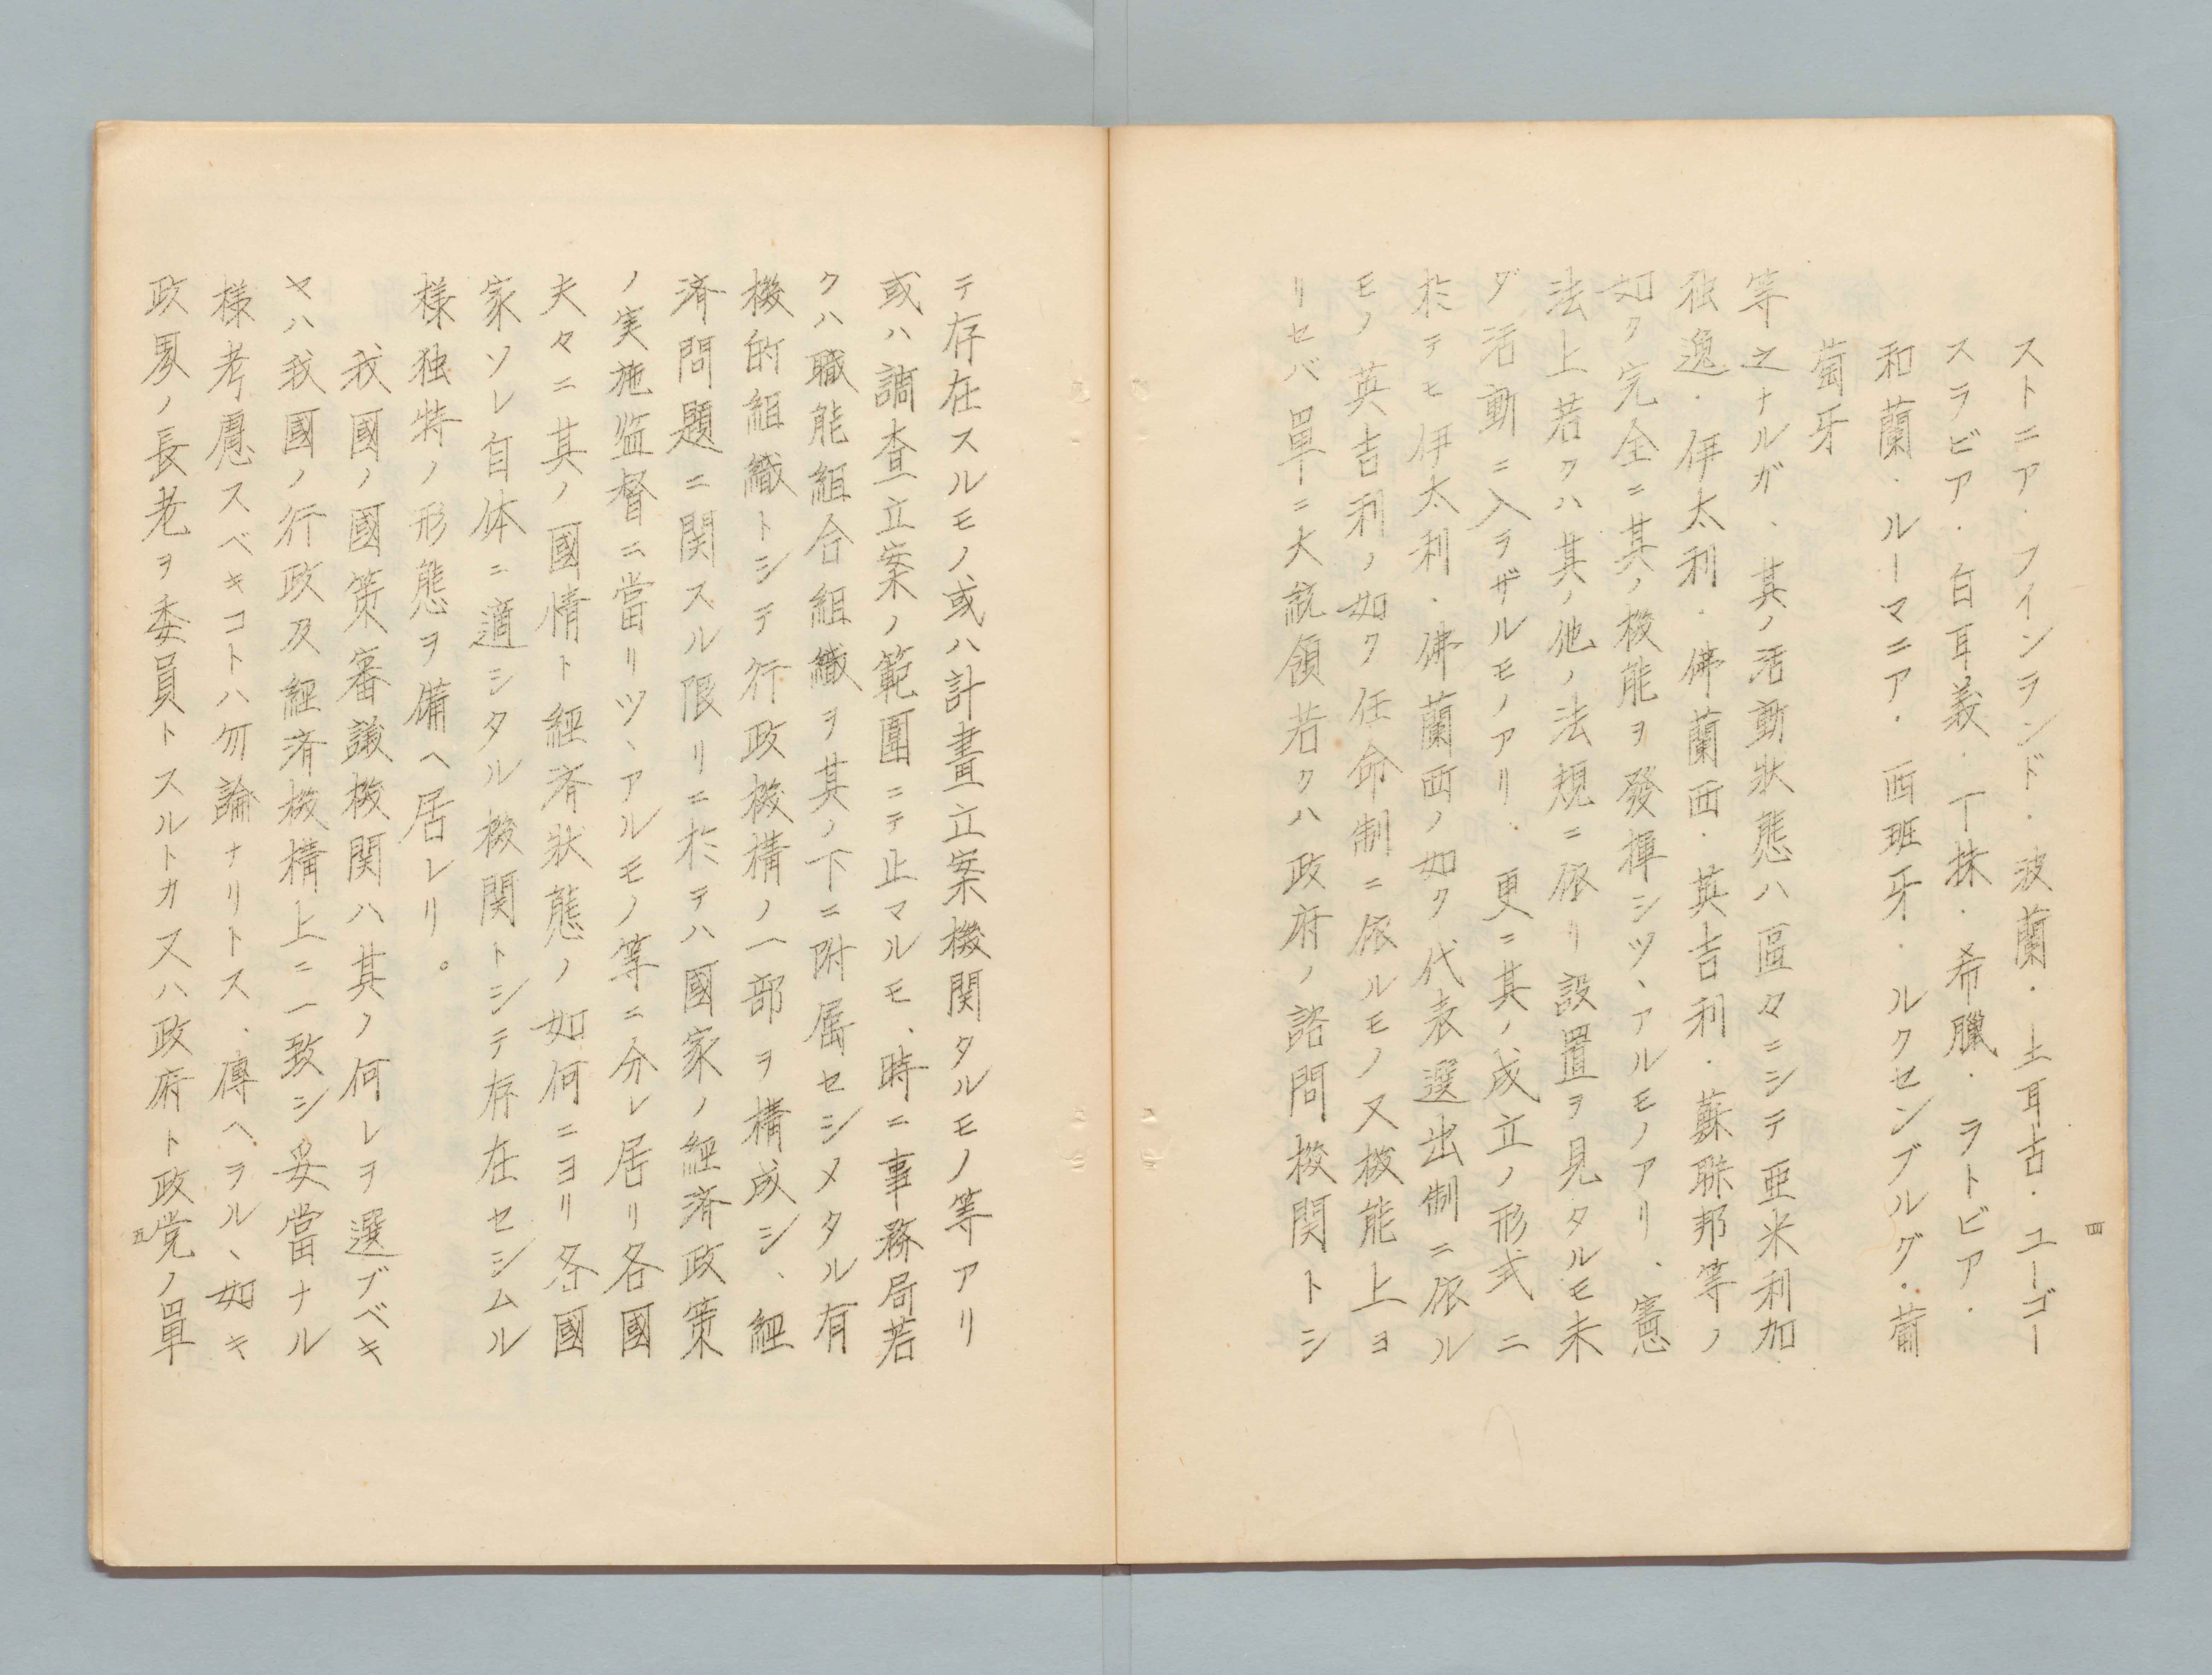 四
ストニア・フィンランド・波蘭・土耳古・ユーゴー
スラビア・白耳義・丁抹・希臘・ラトビア・
和蘭・ルーマニア・西班牙・ルクセンブルグ・葡
萄牙
等之ナルガ、其ノ活動狀態ハ區々ニシテ亜米利加
独逸・伊太利・佛蘭西・英吉利・蘇聯邦等ノ
如ク完全ニ其ノ機能ヲ發揮シツヽアルモノアリ、憲
法上若クハ其ノ他ノ法規ニ依リ設置ヲ見タルモ未
ダ活動ニ入ラザルモノアリ、更ニ其ノ成立ノ形式ニ
於テモ伊太利・佛蘭西ノ如ク代表選出制ニ依ル
モノ英吉利ノ如ク任命制ニ依ルモノ又機能上ヨ
リセバ單ニ大統領若クハ政府ノ諮問機関トシ
テ存在スルモノ或ハ計畫立案機関タルモノ等アリ
或ハ調査立案ノ範圍ニテ止マルモ、時ニ事務局若
クハ職能組合組織ヲ其ノ下ニ附属セシメタル有
機的組織トシテ行政機構ノ一部ヲ構成シ、經
済問題ニ関スル限リニ於テハ國家ノ經済政策
ノ実施監督ニ當リツヽアルモノ等ニ分レ居リ各國
夫々ニ其ノ國情ト經済狀態ノ如何ニヨリ各國
家ソレ自体ニ適シタル機関トシテ存在セシムル
様独特ノ形態ヲ備ヘ居レリ。
我國ノ國策審議機関ハ其ノ何レヲ選ブベキ
ヤハ我國ノ行政及經済機構上ニ一致シ妥當ナル
様考慮スベキコトハ勿論ナリトス、傳ヘラルヽ如キ
政界ノ長老ヲ委員トスルトカ又ハ政府ト政党ノ單
五